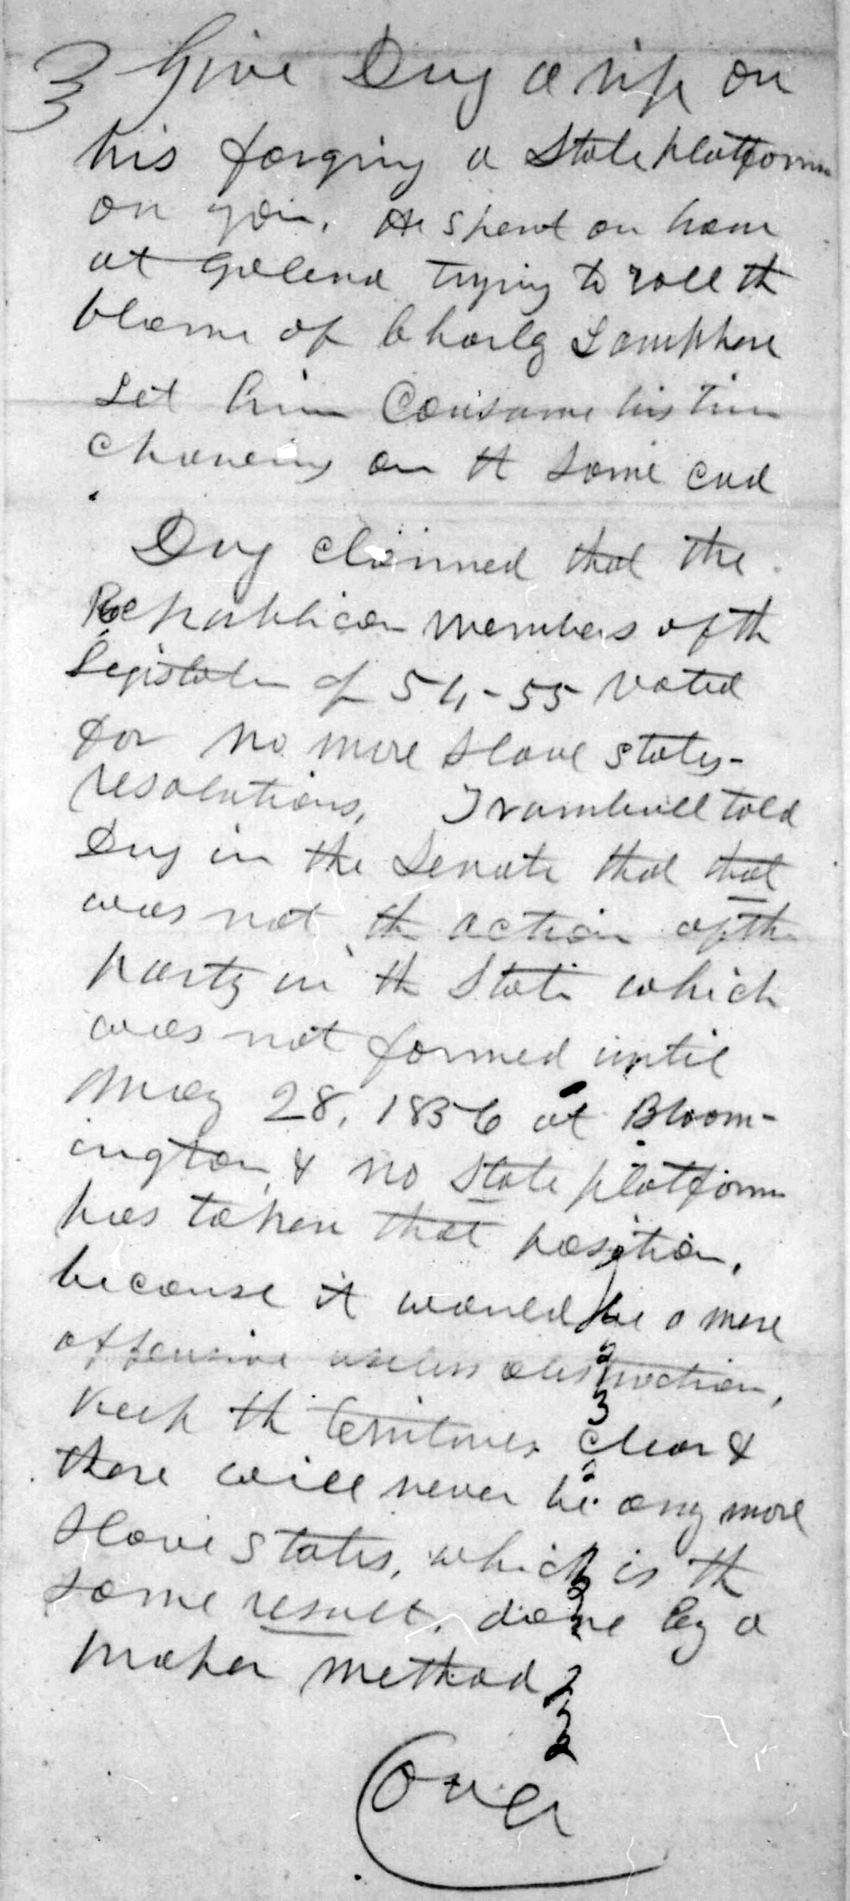 3 Give Dug a rip on
his forging a State platform
on you. He spent an hour
at Galena trying to roll th
blame of Charly Lamphere
Let him Consume his time
chawing on th same cud
Dug claimed that the
Republican members of th
Legislatur of 54-55 voted
for no more slave states-
resolutions. Trumbull told
Dug in the Senate that that
was not th action of th
party in th State which
was not formed until
May 28, 1856 at Bloom-
ington, & no State platform
has taken that position,
because it would be a mere
offensive useless abstraction,
Keep th Territories clear &
there will never be any more
Slave States, which is th
same result. done by a
proper method
Over